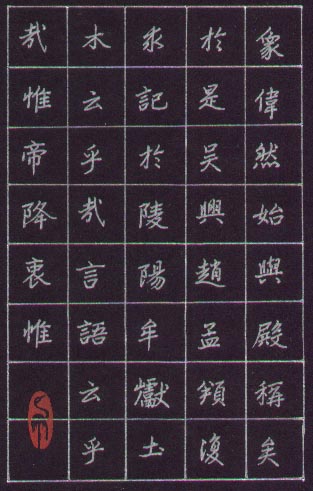 象偉然始與殿稱矣
於是吳興趙孟頫復
求記於陵陽牟巘土
木云乎哉言語云乎
哉惟帝降衷惟